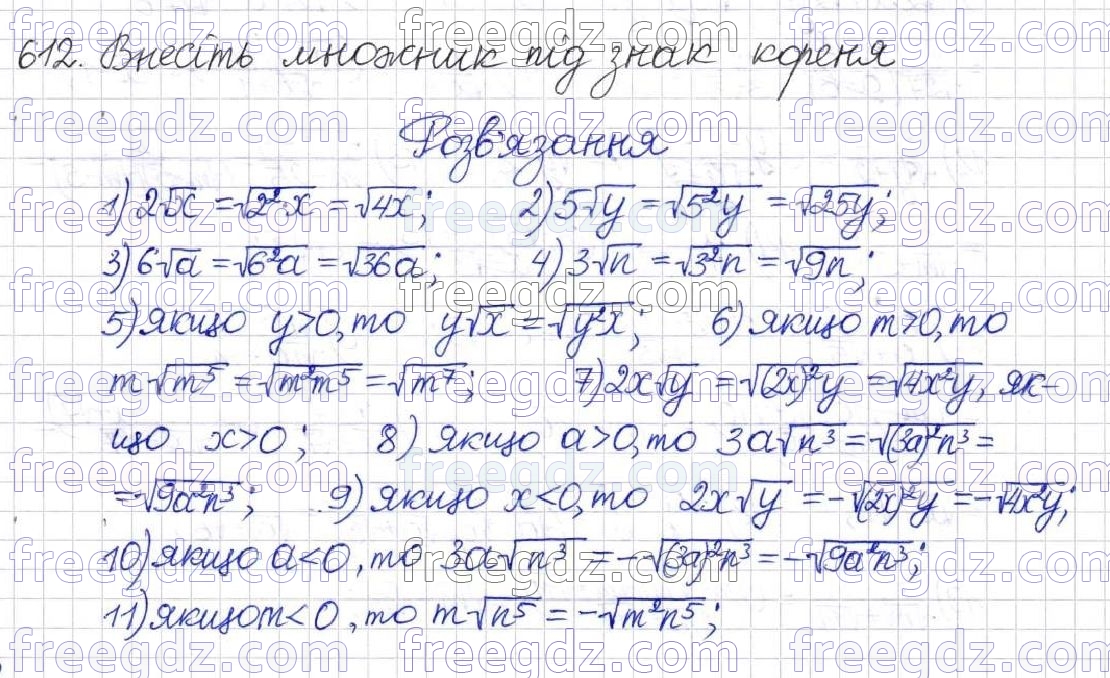 612. Внесіть множник під знак кореня
Розв'язання
1) 2√x = √(2²·x) = √(4x); 2) 5√y = √(5²y) = √(25y);
3) 6√a = √(6²a) = √(36a); 4) 3√n = √(3²n) = √(9n);
5) якщо y>0, то y√x = √(y²x); 6) якщо m>0, то
m√(m⁵) = √(m²m⁵) = √(m⁷); 7) 2x√y = √((2x)²y) = √(4x²y), як-
що x>0; 8) якщо a>0, то 3a√(n³) = √((3a)²n³) =
= √(9a²n³); 9) якщо x<0, то 2x√y = -√((2x)²y) = -√(4x²y);
10) якщо a<0, то 3a√(n³) = -√((3a)²n³) = -√(9a²n³);
11) якщо m<0, то m√(n⁵) = -√(m²n⁵);
freegdz.com